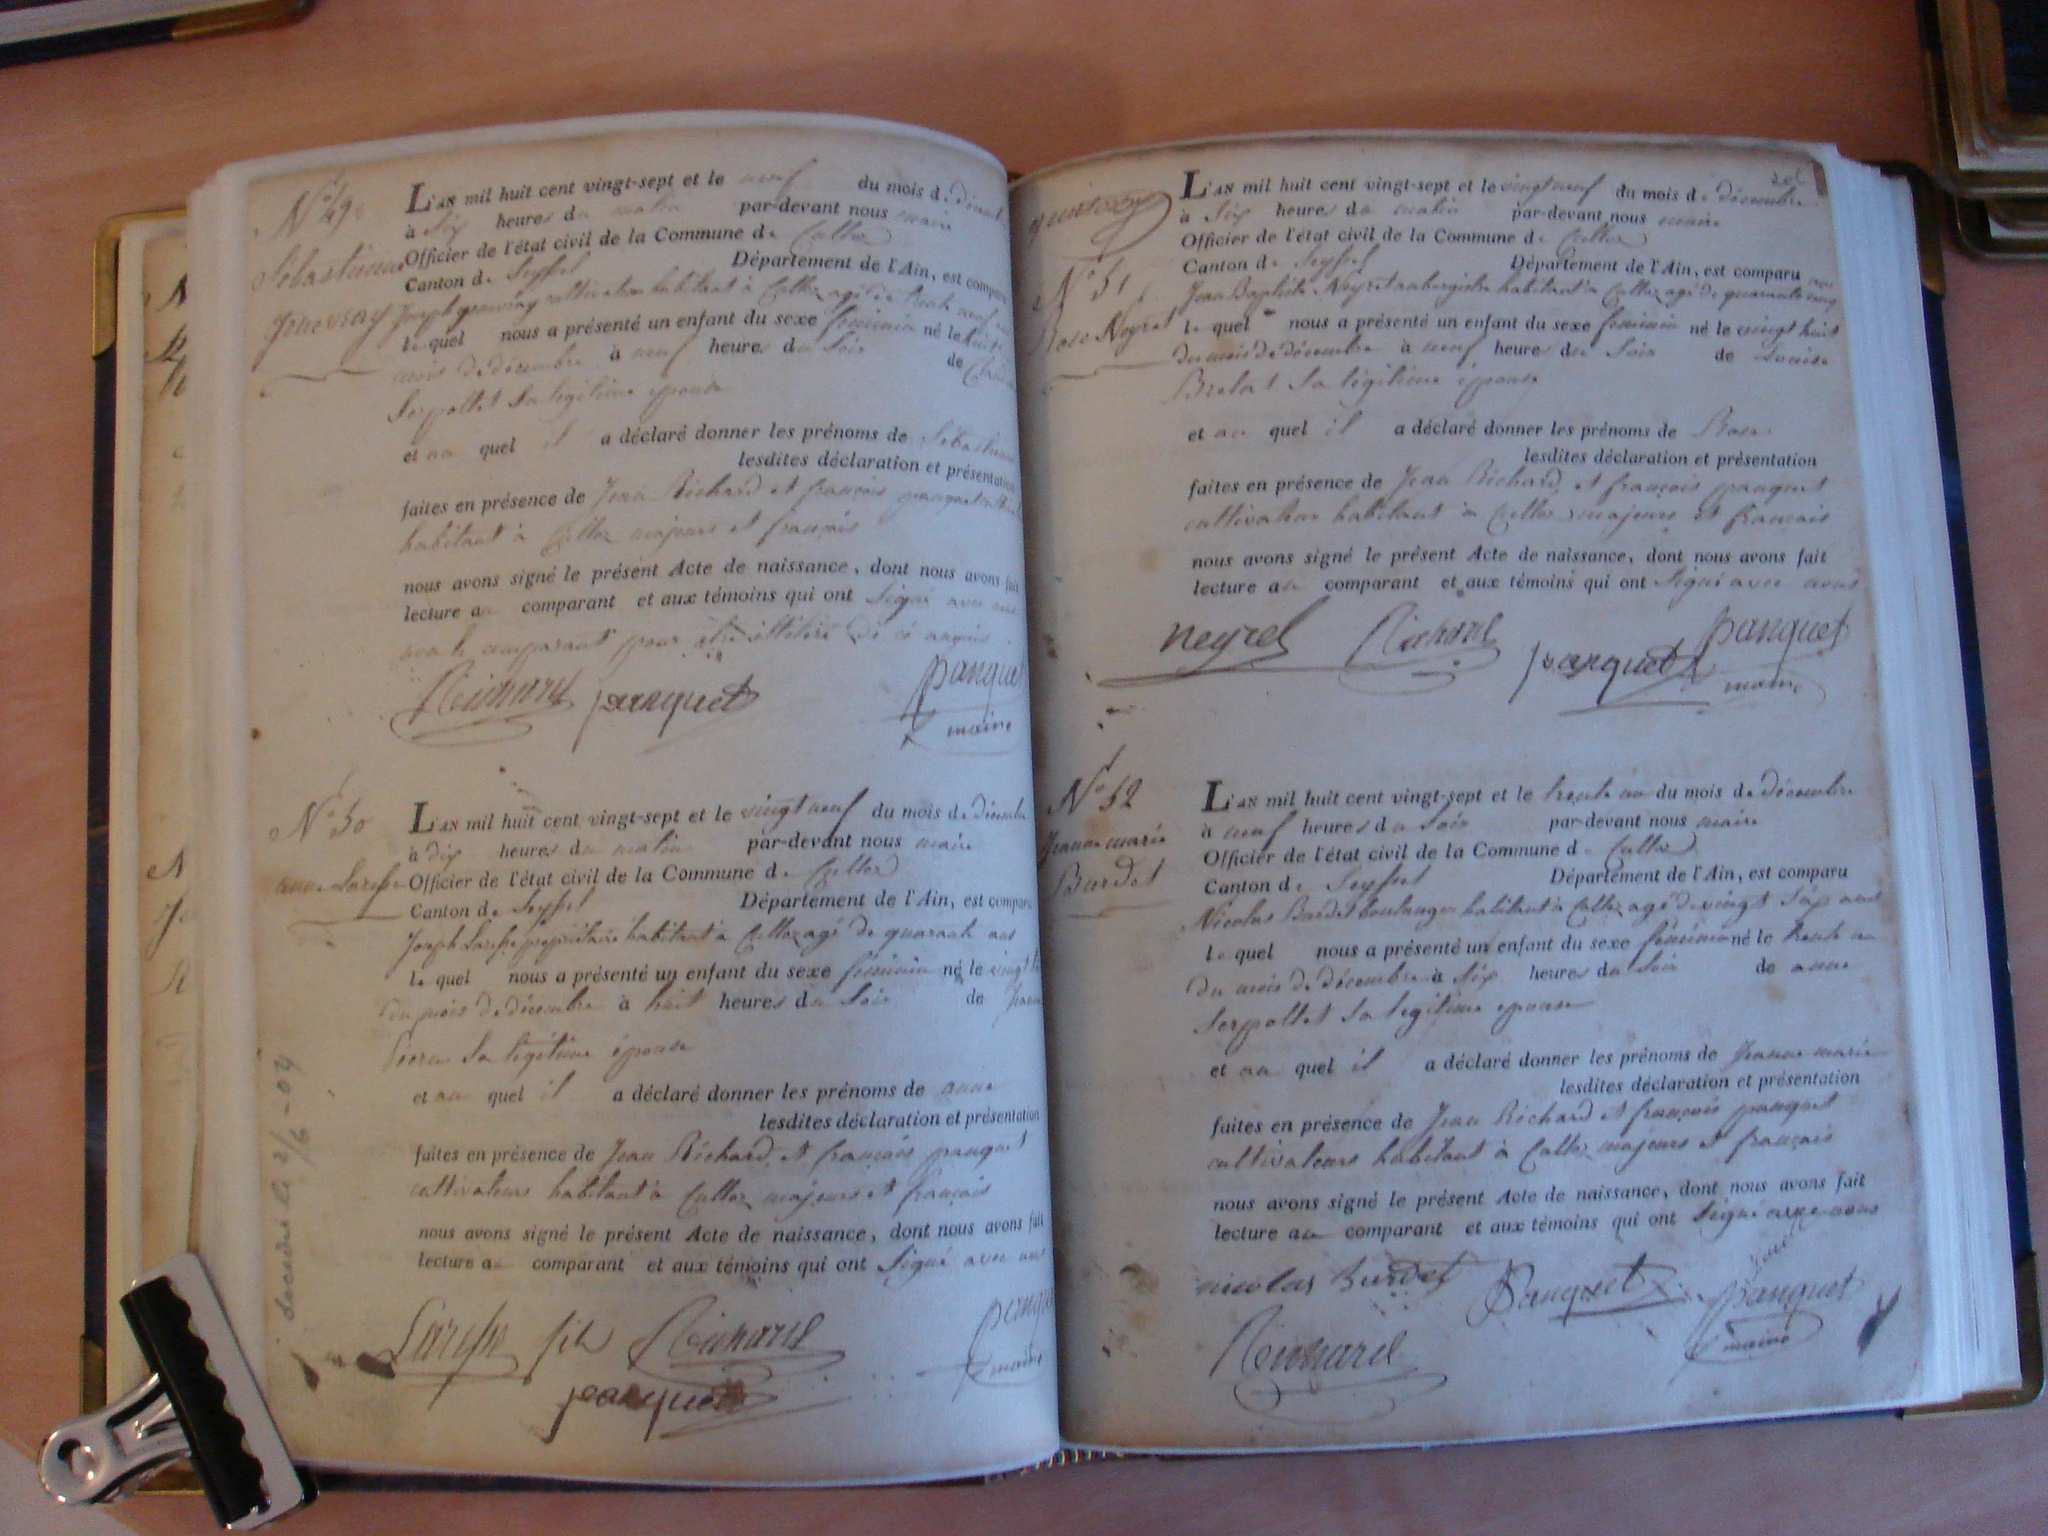 N° 49
Sébastienne
Jenevray
L'AN mil huit cent vingt-sept et le neuf du mois de décemb
à six heures du matin par-devant nous maire
Officier de l'état civil de la Commune de Culloz
Canton de Seyssel Département de l'Ain, est comparu
Joseph genevray cultivateur habitant à Culloz agé de trente neuf ans
le quel nous a présenté un enfant du sexe féminin né le huit
mois de décembre à neuf heures du soir de
Serpollet sa légitime épouse
et au quel il a déclaré donner les prénoms de Sébastienne
lesdites déclaration et présentation
faites en présence de Jean Richard et françois panquet
habitant à Culloz majeurs et français
nous avons signé le présent Acte de naissance, dont nous avons fait
lecture au comparant et aux témoins qui ont signé avec nous
non le comparant pour être illitéré de ce requis
Richard panquet panquet
maire
N° 50
anne Larche
L'AN mil huit cent vingt-sept et le vingt neuf du mois de décembre
à dix heures du matin par-devant nous maire
Officier de l'état civil de la Commune de Culloz
Canton de Seyssel Département de l'Ain, est comparu
Joseph Larche propriétaire habitant à Culloz agé de quarante ans
le quel nous a présenté un enfant du sexe féminin né le vingt
du mois de décembre à huit heures du soir de
sa légitime épouse
et au quel il a déclaré donner les prénoms de anne
lesdites déclaration et présentation
faites en présence de Jean Richard et françois panquet
cultivateurs habitant à Culloz majeurs et français
nous avons signé le présent Acte de naissance, dont nous avons fait
lecture au comparant et aux témoins qui ont signé avec nous
Larche fils Richard panquet
maire
panquet
N° 51
Rose Neyret
L'AN mil huit cent vingt-sept et le vingt neuf du mois de décembre
à six heures du matin par-devant nous maire
Officier de l'état civil de la Commune de Culloz
Canton de Seyssel Département de l'Ain, est comparu
Jean Baptiste Neyret aubergiste habitant à Culloz agé de quarante cinq ans
le quel nous a présenté un enfant du sexe féminin né le vingt huit
du mois de décembre à neuf heures du soir de Louise
Brelat sa légitime épouse
et au quel il a déclaré donner les prénoms de Rose
lesdites déclaration et présentation
faites en présence de Jean Richard et françois panquet
cultivateur habitant à Culloz majeurs et français
nous avons signé le présent Acte de naissance, dont nous avons fait
lecture au comparant et aux témoins qui ont signé avec nous
neyret Richard panquet panquet
maire
N° 52
Jeanne marie
Burdet
L'AN mil huit cent vingt-sept et le trente un du mois de décembre
à neuf heures du soir par-devant nous maire
Officier de l'état civil de la Commune de Culloz
Canton de Seyssel Département de l'Ain, est comparu
Nicolas Burdet boulanger habitant à Culloz agé de vingt six ans
le quel nous a présenté un enfant du sexe féminin né le trente un
du mois de décembre à six heures du soir de anne
Serpollet sa légitime épouse
et au quel il a déclaré donner les prénoms de Jeanne marie
lesdites déclaration et présentation
faites en présence de Jean Richard et françois panquet
cultivateurs habitant à Culloz majeurs et français
nous avons signé le présent Acte de naissance, dont nous avons fait
lecture au comparant et aux témoins qui ont signé avec nous
nicolas burdet Panquet panquet
maire
Richard